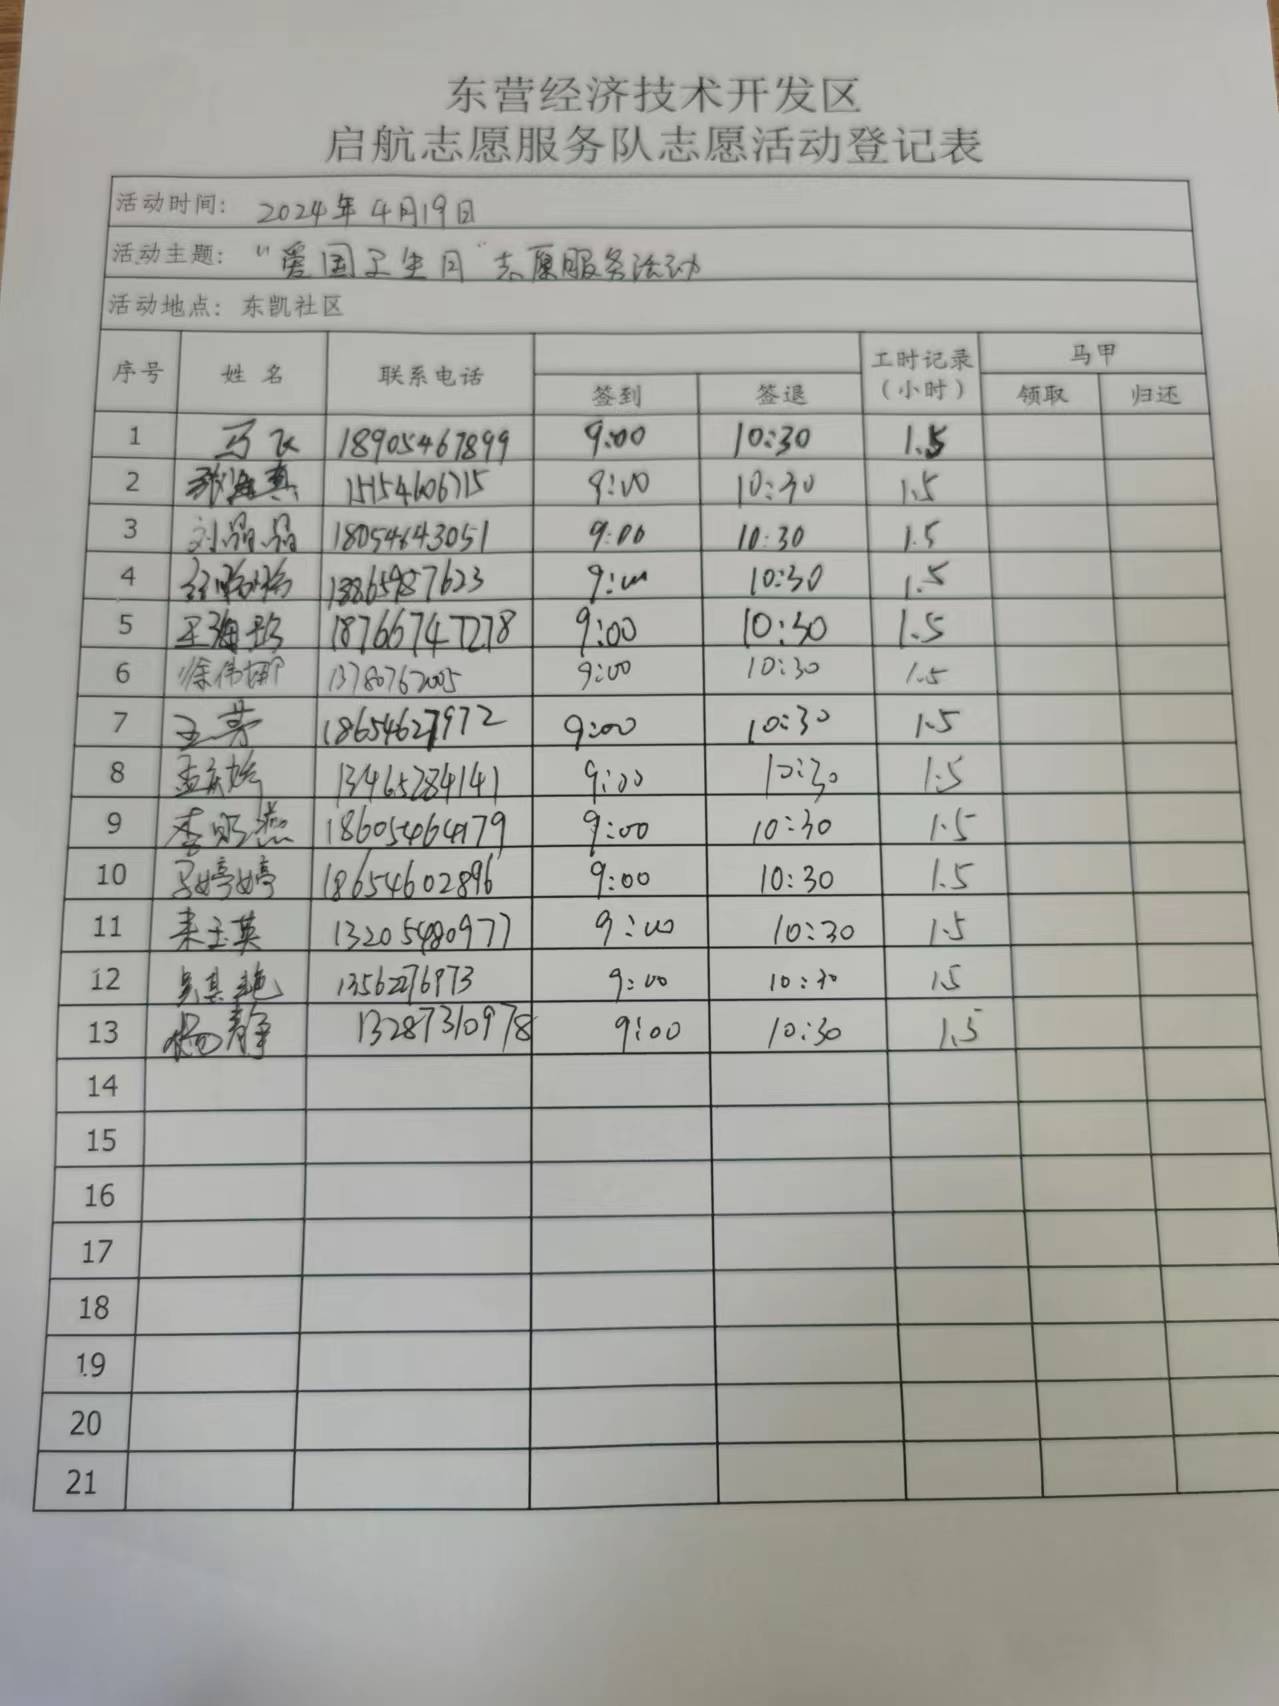 东营经济技术开发区
启航志愿服务队志愿活动登记表
活动时间： 2024年4月19日
活动主题： “爱国卫生月”志愿服务活动
活动地点：东凯社区
序号 姓名 联系电话 签到 签退 工时记录（小时） 马甲 领取 归还
1 马飞 18905467899 9:00 10:30 1.5
2 15154606715 9:00 10:30 1.5
3 刘晶晶 18054643051 9:00 10:30 1.5
4 18865987623 9:00 10:30 1.5
5 王海珍 18766747278 9:00 10:30 1.5
6 徐伟娜 13780762005 9:00 10:30 1.5
7 王芳 18654627972 9:00 10:30 1.5
8 13465284141 9:00 10:30 1.5
9 李 燕 18605464179 9:00 10:30 1.5
10 婷婷 18654602896 9:00 10:30 1.5
11 玉英 13205480977 9:00 10:30 1.5
12 吴其艳 13562276973 9:00 10:30 1.5
13 杨静 13287310978 9:00 10:30 1.5
14
15
16
17
18
19
20
21